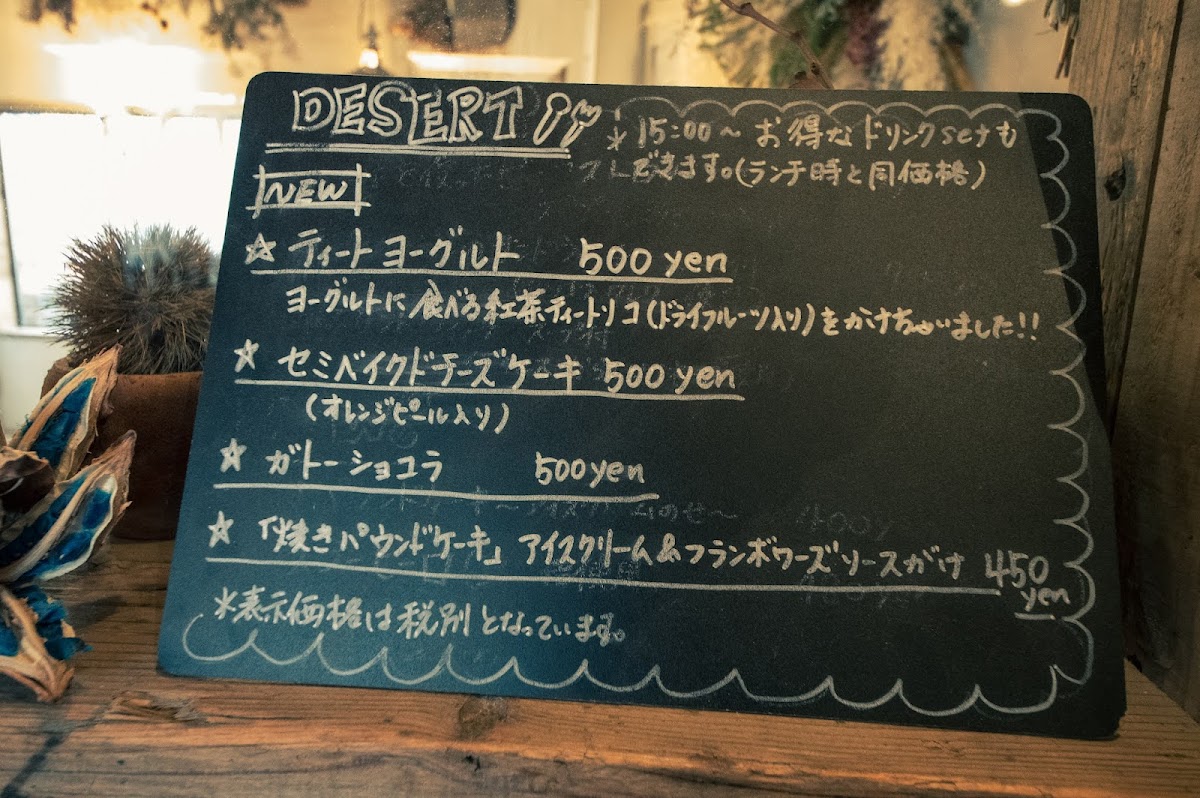 DESERT
*15:00〜 お得なドリンクsetも
できます。(ランチ時と同価格)
NEW
☆ ティートヨーグルト 500 yen
ヨーグルトに食べる紅茶ティートリコ(ドライフルーツ入り)をかけちゃいました!!
☆ セミベイクドチーズケーキ 500 yen
(オレンジピール入り)
☆ ガトーショコラ 500yen
☆ 「焼きパウンドケーキ」 アイスクリーム&フランボワーズソースがけ 450
yen
*表示価格は税別となっています。